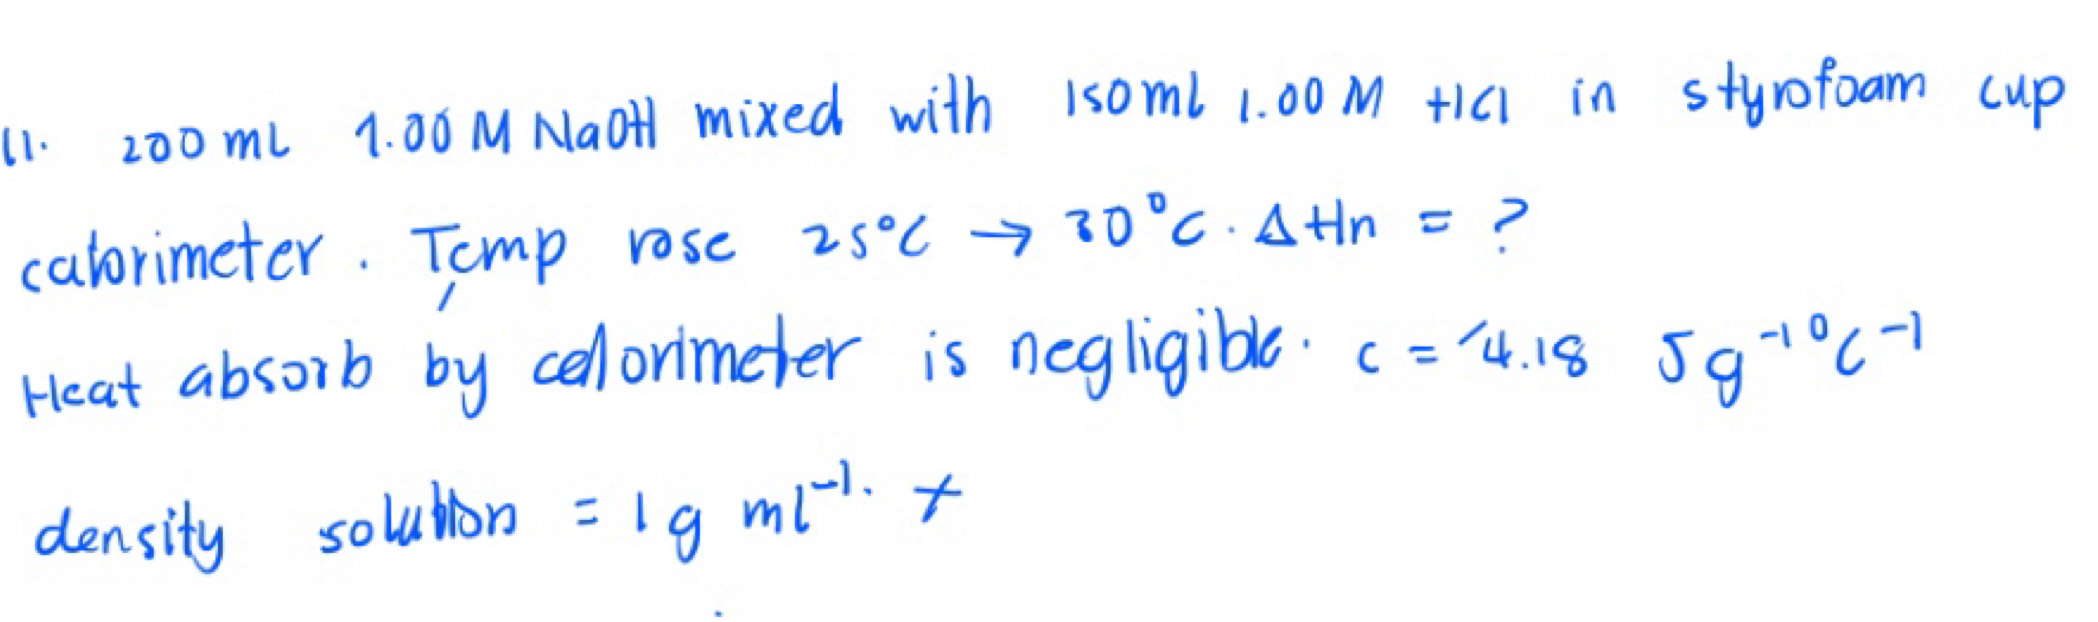 11. 200 mL 1.00 M NaOH mixed with 150ml 1.00 M HCl in styrofoam cup
calorimeter. Temp rose 25°C → 30°C. ΔHn = ?
Heat absorb by calorimeter is negligible. c = 4.18 Jg⁻¹°C⁻¹
density solution = 1g ml⁻¹.